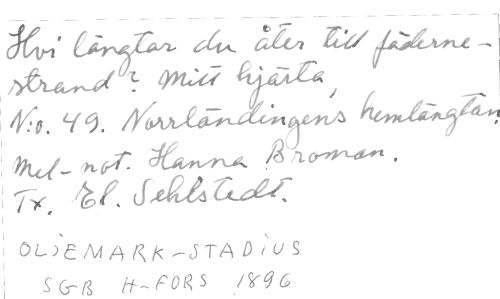 Hvi längtar du åter till fäderne-
strand? Mitt hjärta,
N:o. 49. Norrländingens hemlängtan.
Mel-not. Hanna Broman.
Tx. El. Sehlstedt.
OLJEMARK-STADIUS
SGB H-FORS 1896